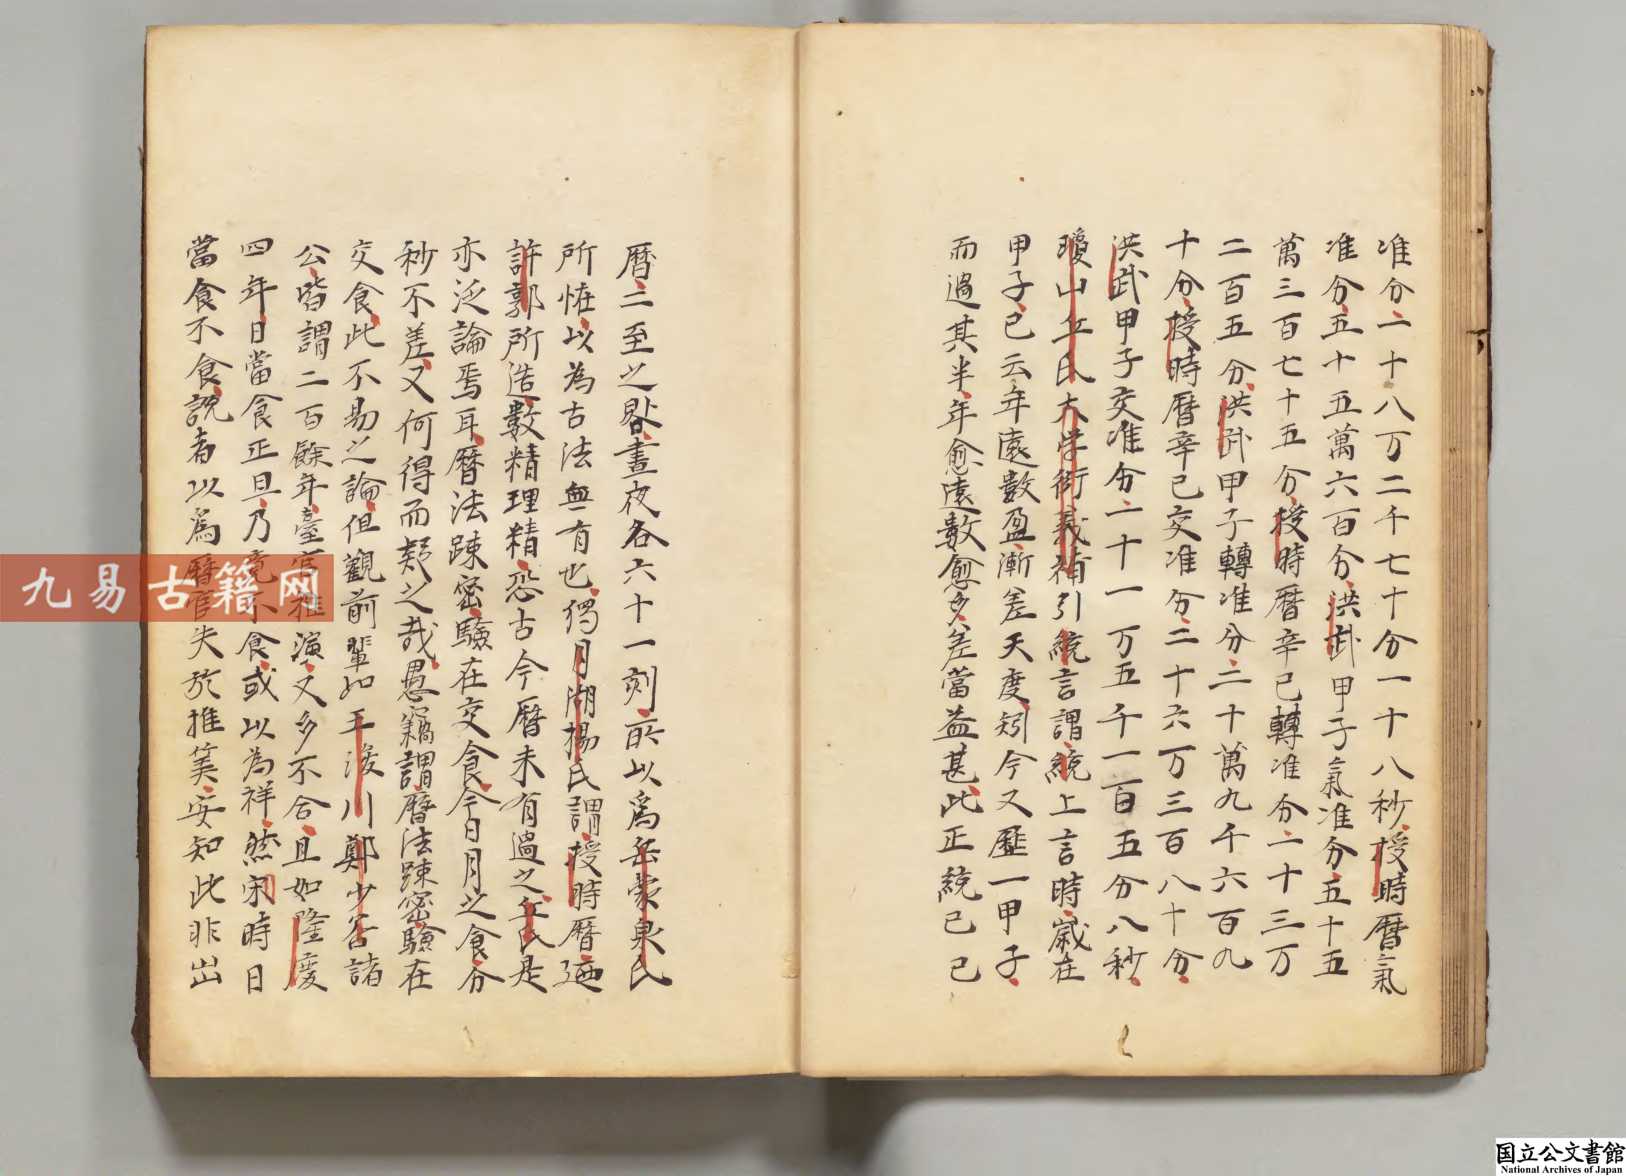 准分一十八万二千七十分一十八秒授時曆氣
准分五十五萬六百分洪武甲子氣准分五十五
萬三百七十五分授時曆辛已轉准分一十三万
二百五分洪武甲子轉准分二十萬九千六百九
十分授時曆辛已交准分二十六万三百八十分
洪武甲子交准分一十一万五千一百五分八秒
瓊山丘氏大学衍義補引統言謂統上言時歲在
甲子已云年遠數盈漸差天度矧今又歷一甲子
而過其半年愈遠數愈多差當益甚此正統己巳
曆二至之晷晝夜各六十一刻所以爲岳蒙泉氏
所恠以為古法無有也獨月湖楊氏謂授時曆廼
許郭所造數精理精恐古今曆未有過之丘氏是
亦泛論焉耳曆法踈密驗在交食今日月之食分
秒不差又何得而疑之哉愚竊謂曆法踈密驗在
交食此不易之論但觀前輩如王浚川鄭少谷諸
公皆謂二百餘年臺官推演又多不合且如隆慶
四年日當食正旦乃竟不食或以為祥然宋時日
當食不食説者以爲曆官失於推筭安知此非出
九易古籍网
国立公文書館
National Archives of Japan